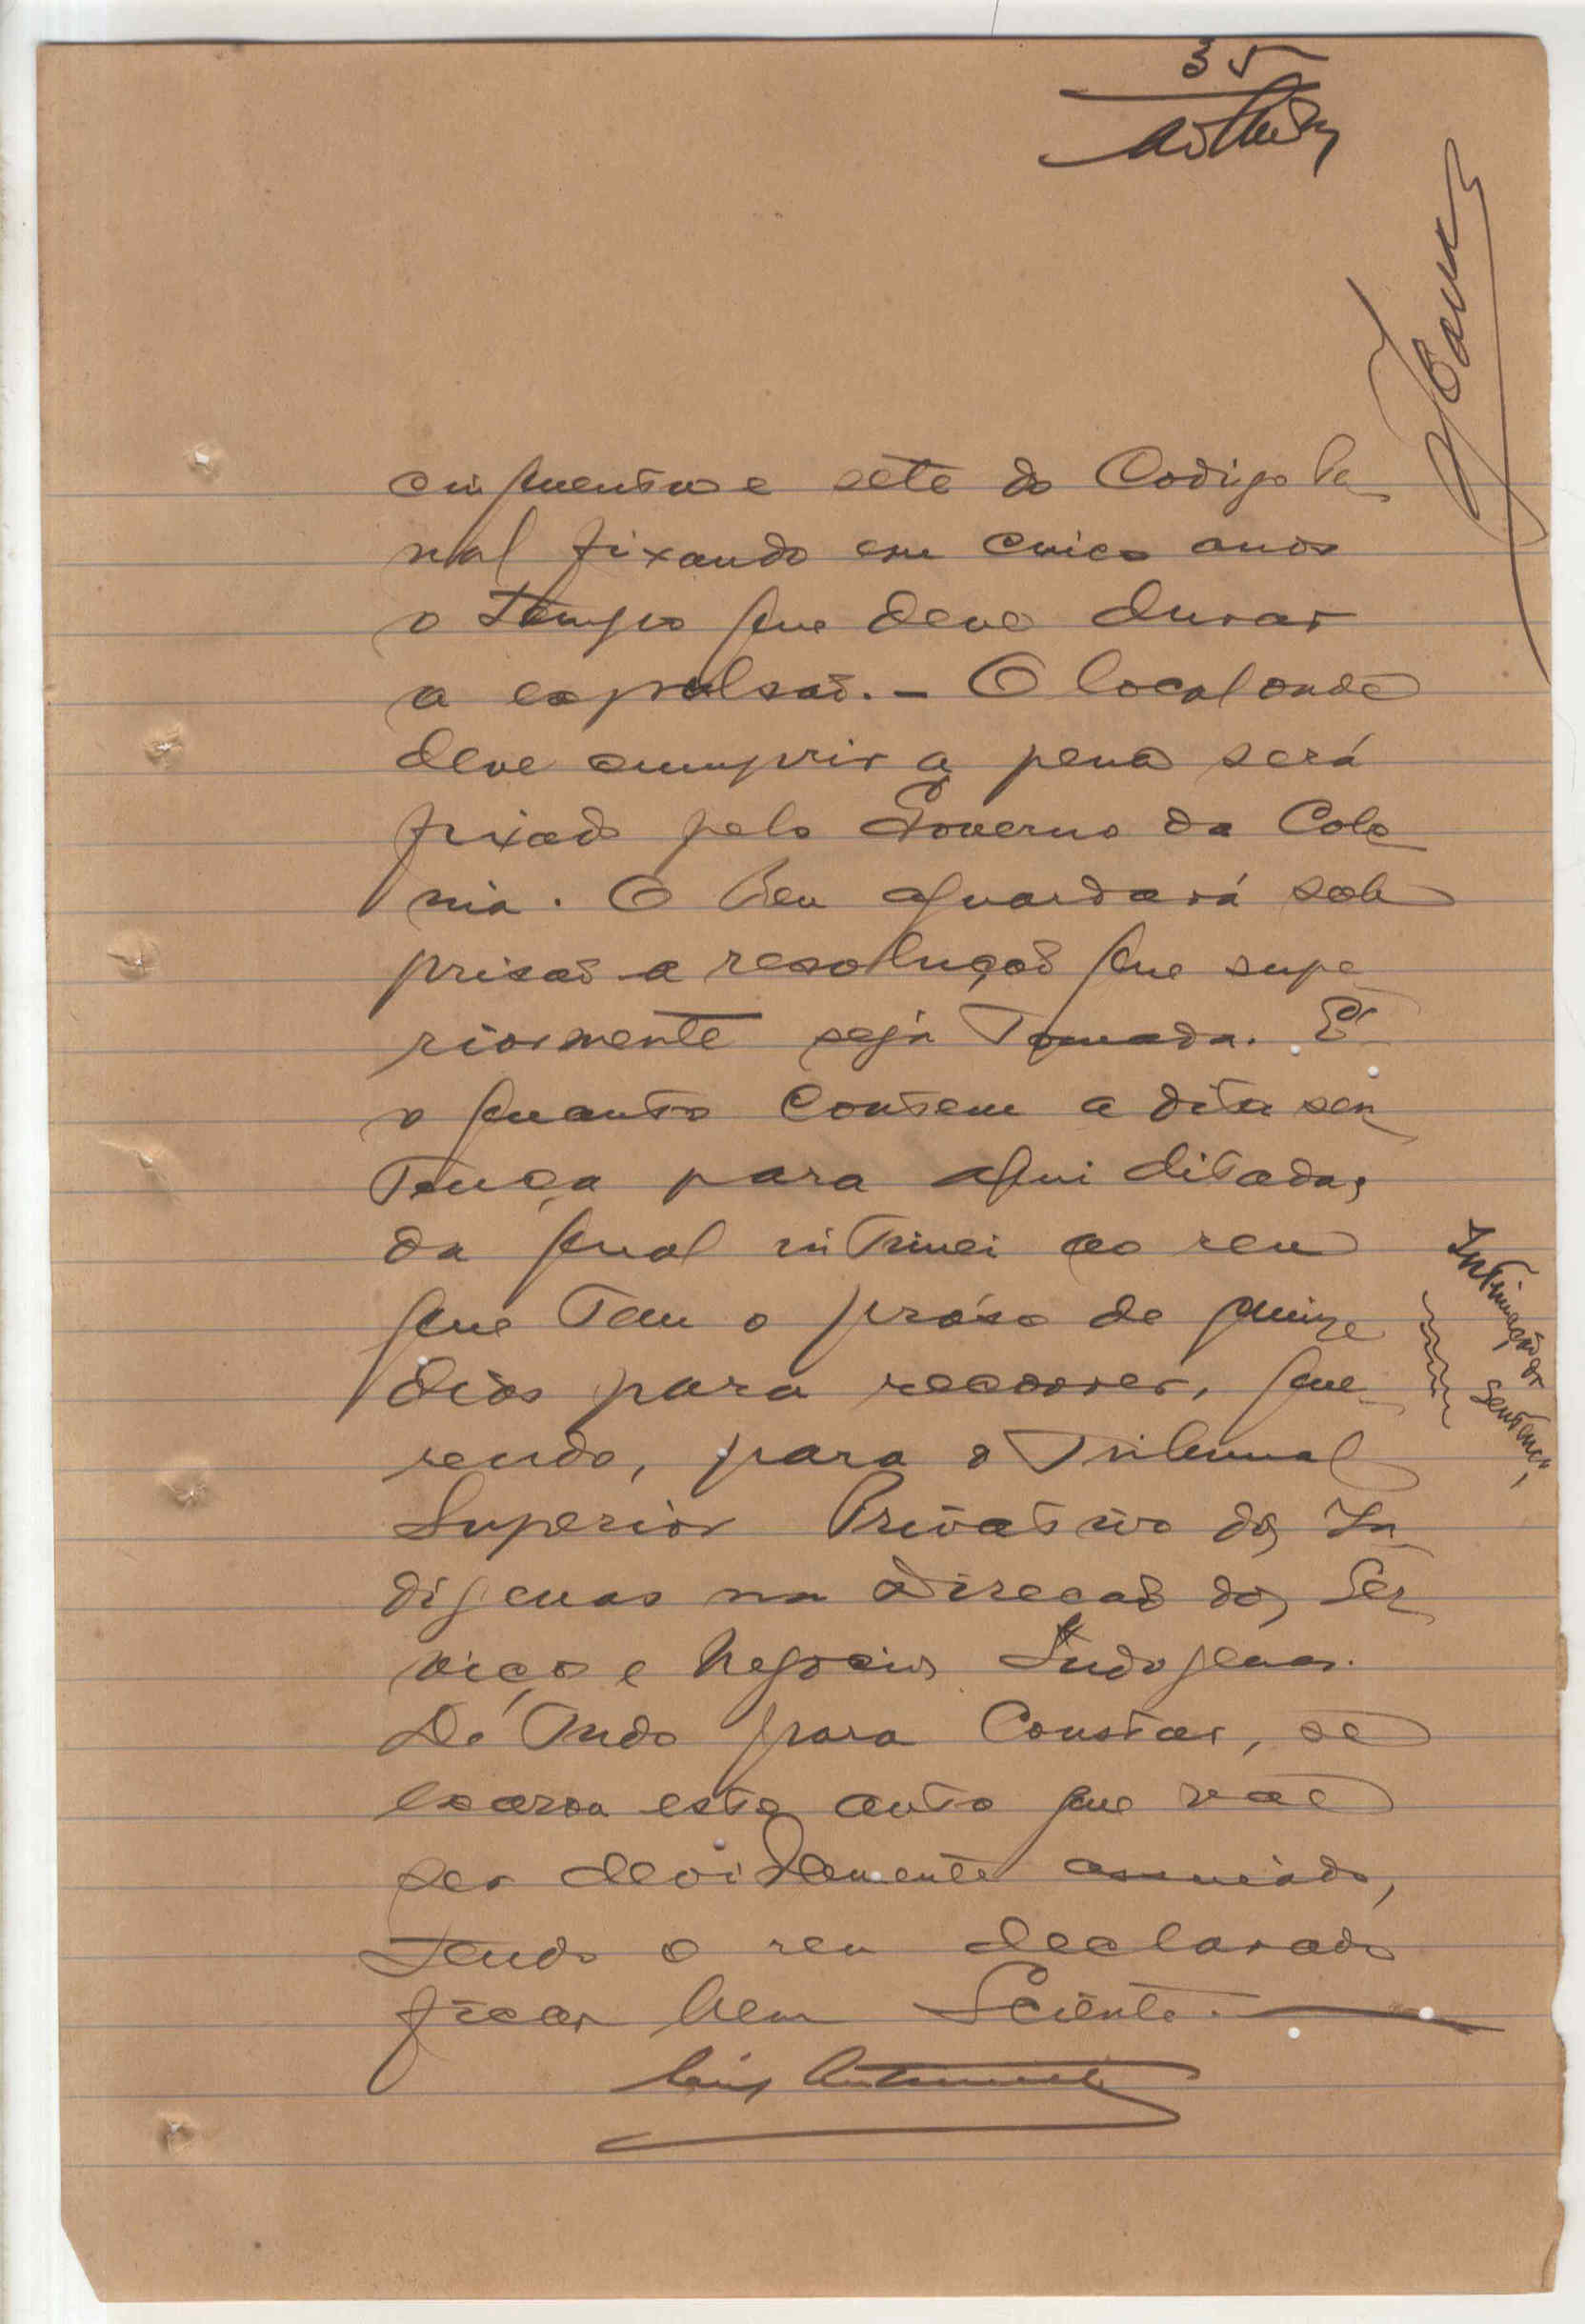 35
cinquenta e sete do Codigo Pe-
nal fixando em cinco anos
o tempo que deve durar
a expulsaõ. - O local onde
deve cumprir a pena será
fixado pelo Governo da Colo
nia. O Reu aguardará sob
prisaõ a resoluçaõ que supe
riormente seja tomada. E'
o quanto contem a dita sen
tença para aqui ditada,
da qual intimei ao reu
que tem o práso de quinze
dias para recorrer, que-
rendo, para o Tribunal
Superior Privativo dos In
digenas na Direcaõ dos Ser
viços e Negocios Indigenas.
De tudo para constar, se
exarou este auto que vae
ser devidamente assinado,
tendo o reu declarado
ficar bem sciente.
Intimação da
sentença